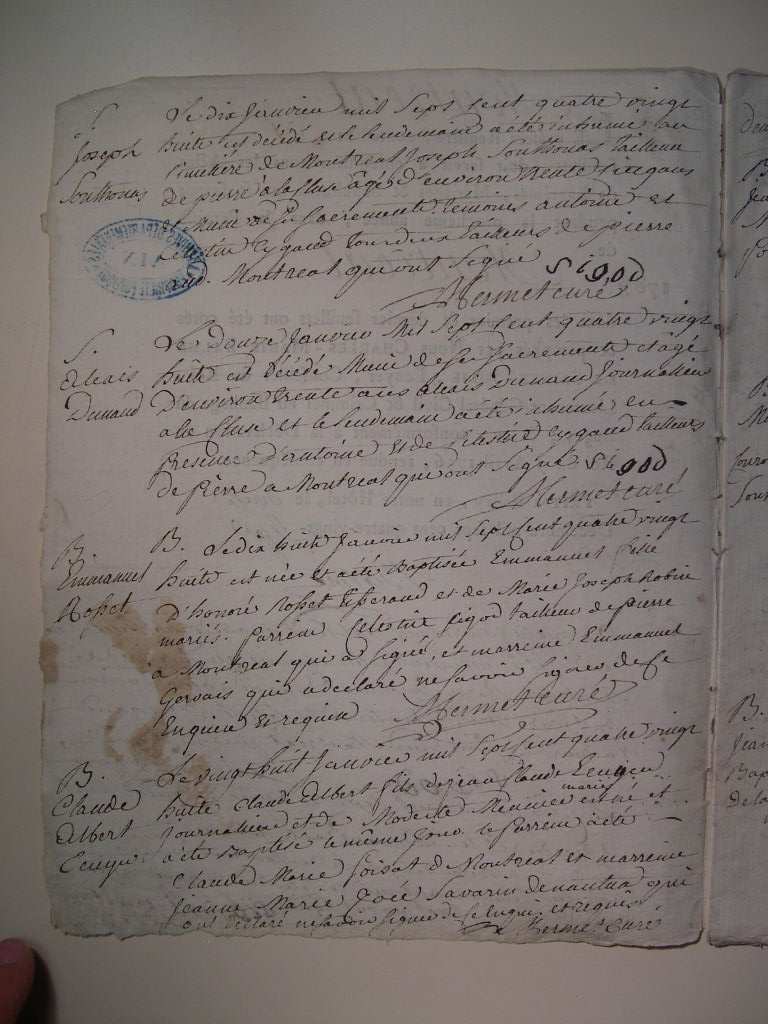 S.
Joseph
Southonas
Le dix Janvier mil Sept Cent quatre vingt
huite est décédé et le lendemain a été inhumé au
Cimetiere de Montreal Joseph Southonas tailleur
De pierre a la Cluse âgé D'environ trente ans
et Muni de Ses Sacrements témoins antoine et
Celestin Cygaud tous deux tailleurs de pierre
aud. Montreal qui ont Signé Sigod
Hermet curé
S.
Alexis
Dunand
Le Douze Janvier Mil Sept Cent quatre vingt
huite est Décédé Muni de Ses Sacrements et agé
D'environ trente ans alexis Dunand Journalier
a la Cluse et le lendemain a été inhumé en
presence D'antoine et de Celestin Cygaud tailleurs
de pierre a Montreal qui ont Signé Sigod
Hermet curé
B.
Emmanuel
Rosset
B. Le dix huite Janvier mil Sept Cent quatre vingt
huite est née et a été Baptisée Emmanuel fille
D'honoré Rosset tisserand et de Marie Joseph Robin
mariés. parrein Celestin Sigod tailleur de pierre
à Montreal qui a Signé, et marreine Emmanuel
Gervais qui a declaré ne Savoir Signer de Ce
Enquise et requise Hermet curé
B.
Claude
Albert
Le vingt huit Janvier mil Sept Cent quatre vingt
huite Claude Albert fils de jean Claude
Journalier et de Modeste Meunier mariés est né et
a été Baptisé le même Jour le parrein a été
Claude Marie poisat de Montreal et marreine
Jeanne Marie Josée Savarin de nantua qui
ont declaré ne Savoir Signer de Ce Enquis et requis
Hermet Curé